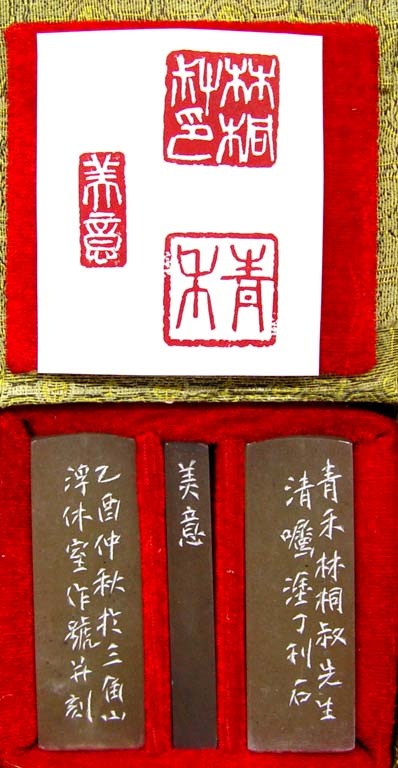 林桐
叔印
青禾
美意
青禾林桐叔先生
清囑塗丁利石
美意
乙酉仲秋於三角山
浮休室作號并刻